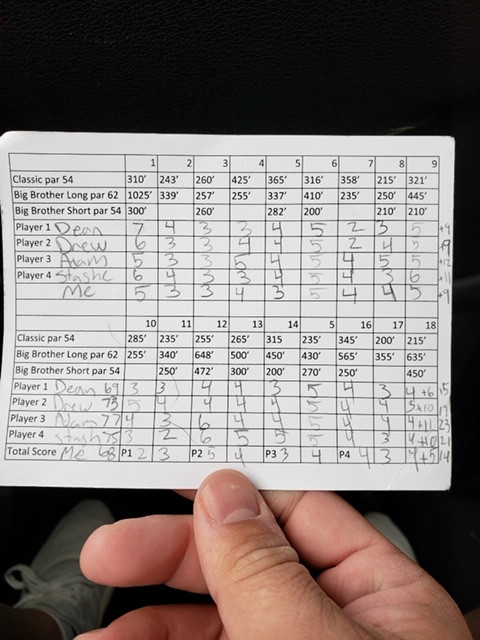 1 2 3 4 5 6 7 8 9
Classic par 54 310' 243' 260' 425' 365' 316' 358' 215' 321'
Big Brother Long par 62 1025' 339' 257' 255' 337' 410' 235' 250' 445'
Big Brother Short par 54 300' 260' 282' 200' 210' 210'
Player 1 Dean 7 4 3 3 4 5 2 3 5
Player 2 Drew 6 3 3 4 4 5 2 4 5 +9
Player 3 Adam 5 3 3 5 4 5 4 5 5 +12
Player 4 Stashe 6 4 3 3 4 5 4 3 6 +11
Me 5 3 3 4 3 5 4 4 5 +9
10 11 12 13 14 5 16 17 18
Classic par 54 285' 235' 255' 265' 315 235' 345' 200' 215'
Big Brother Long par 62 255' 340' 648' 500' 450' 430' 565' 355' 635'
Big Brother Short par 54 250' 472' 300' 200' 270' 250' 450'
Player 1 Dean 69 3 3 4 4 3 5 4 3 4 +6 15
Player 2 Drew 73 5 4 4 4 4 5 4 4 +10 19
Player 3 Adam 77 4 3 6 4 4 5 4 4 4 +11 23
Player 4 Stash 75 3 2 6 5 5 5 4 3 4 +10 21
Total Score Me 68 P1 2 3 P2 5 4 P3 3 4 P4 4 3 4 +5 14